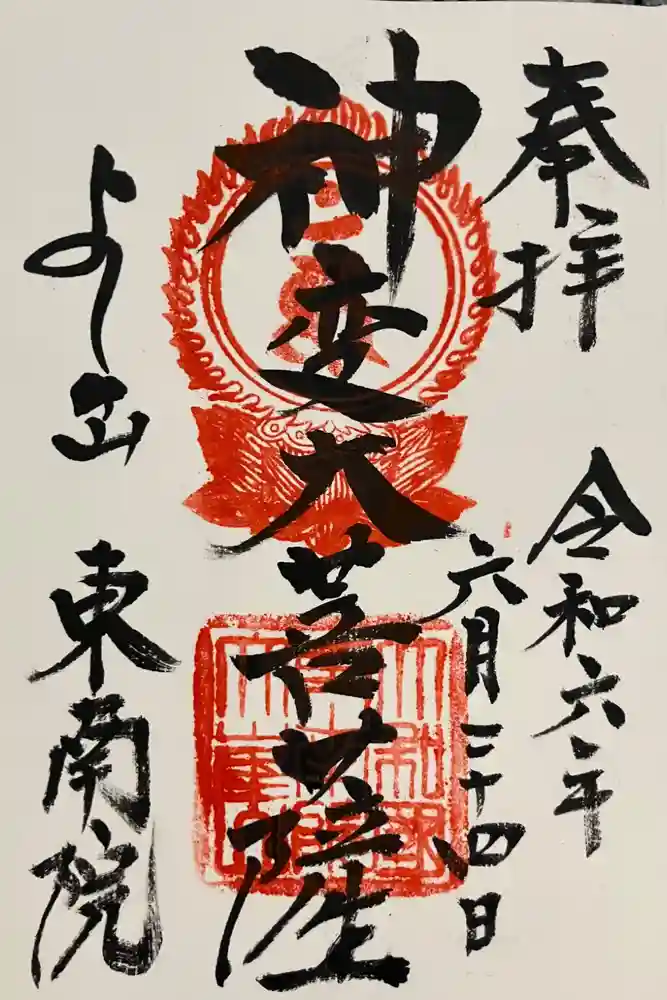 奉拝
令和六年
六月二十四日
神変大菩薩
よしの山
東南院